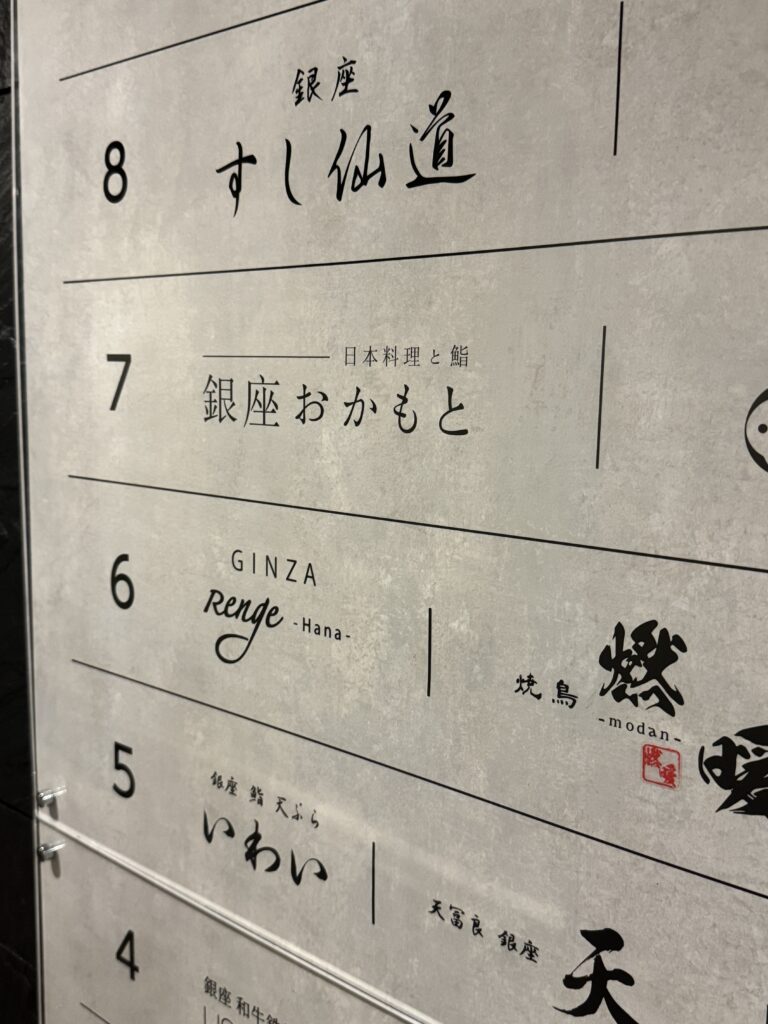 8
銀座
すし仙道
7
日本料理と鮨
銀座おかもと
6
GINZA
Renge -Hana-
焼鳥 燃
-modan-
燃暖
暖
5
銀座 鮨 天ぷら
いわい
天冨良 銀座
天
4
銀座 和牛鉄